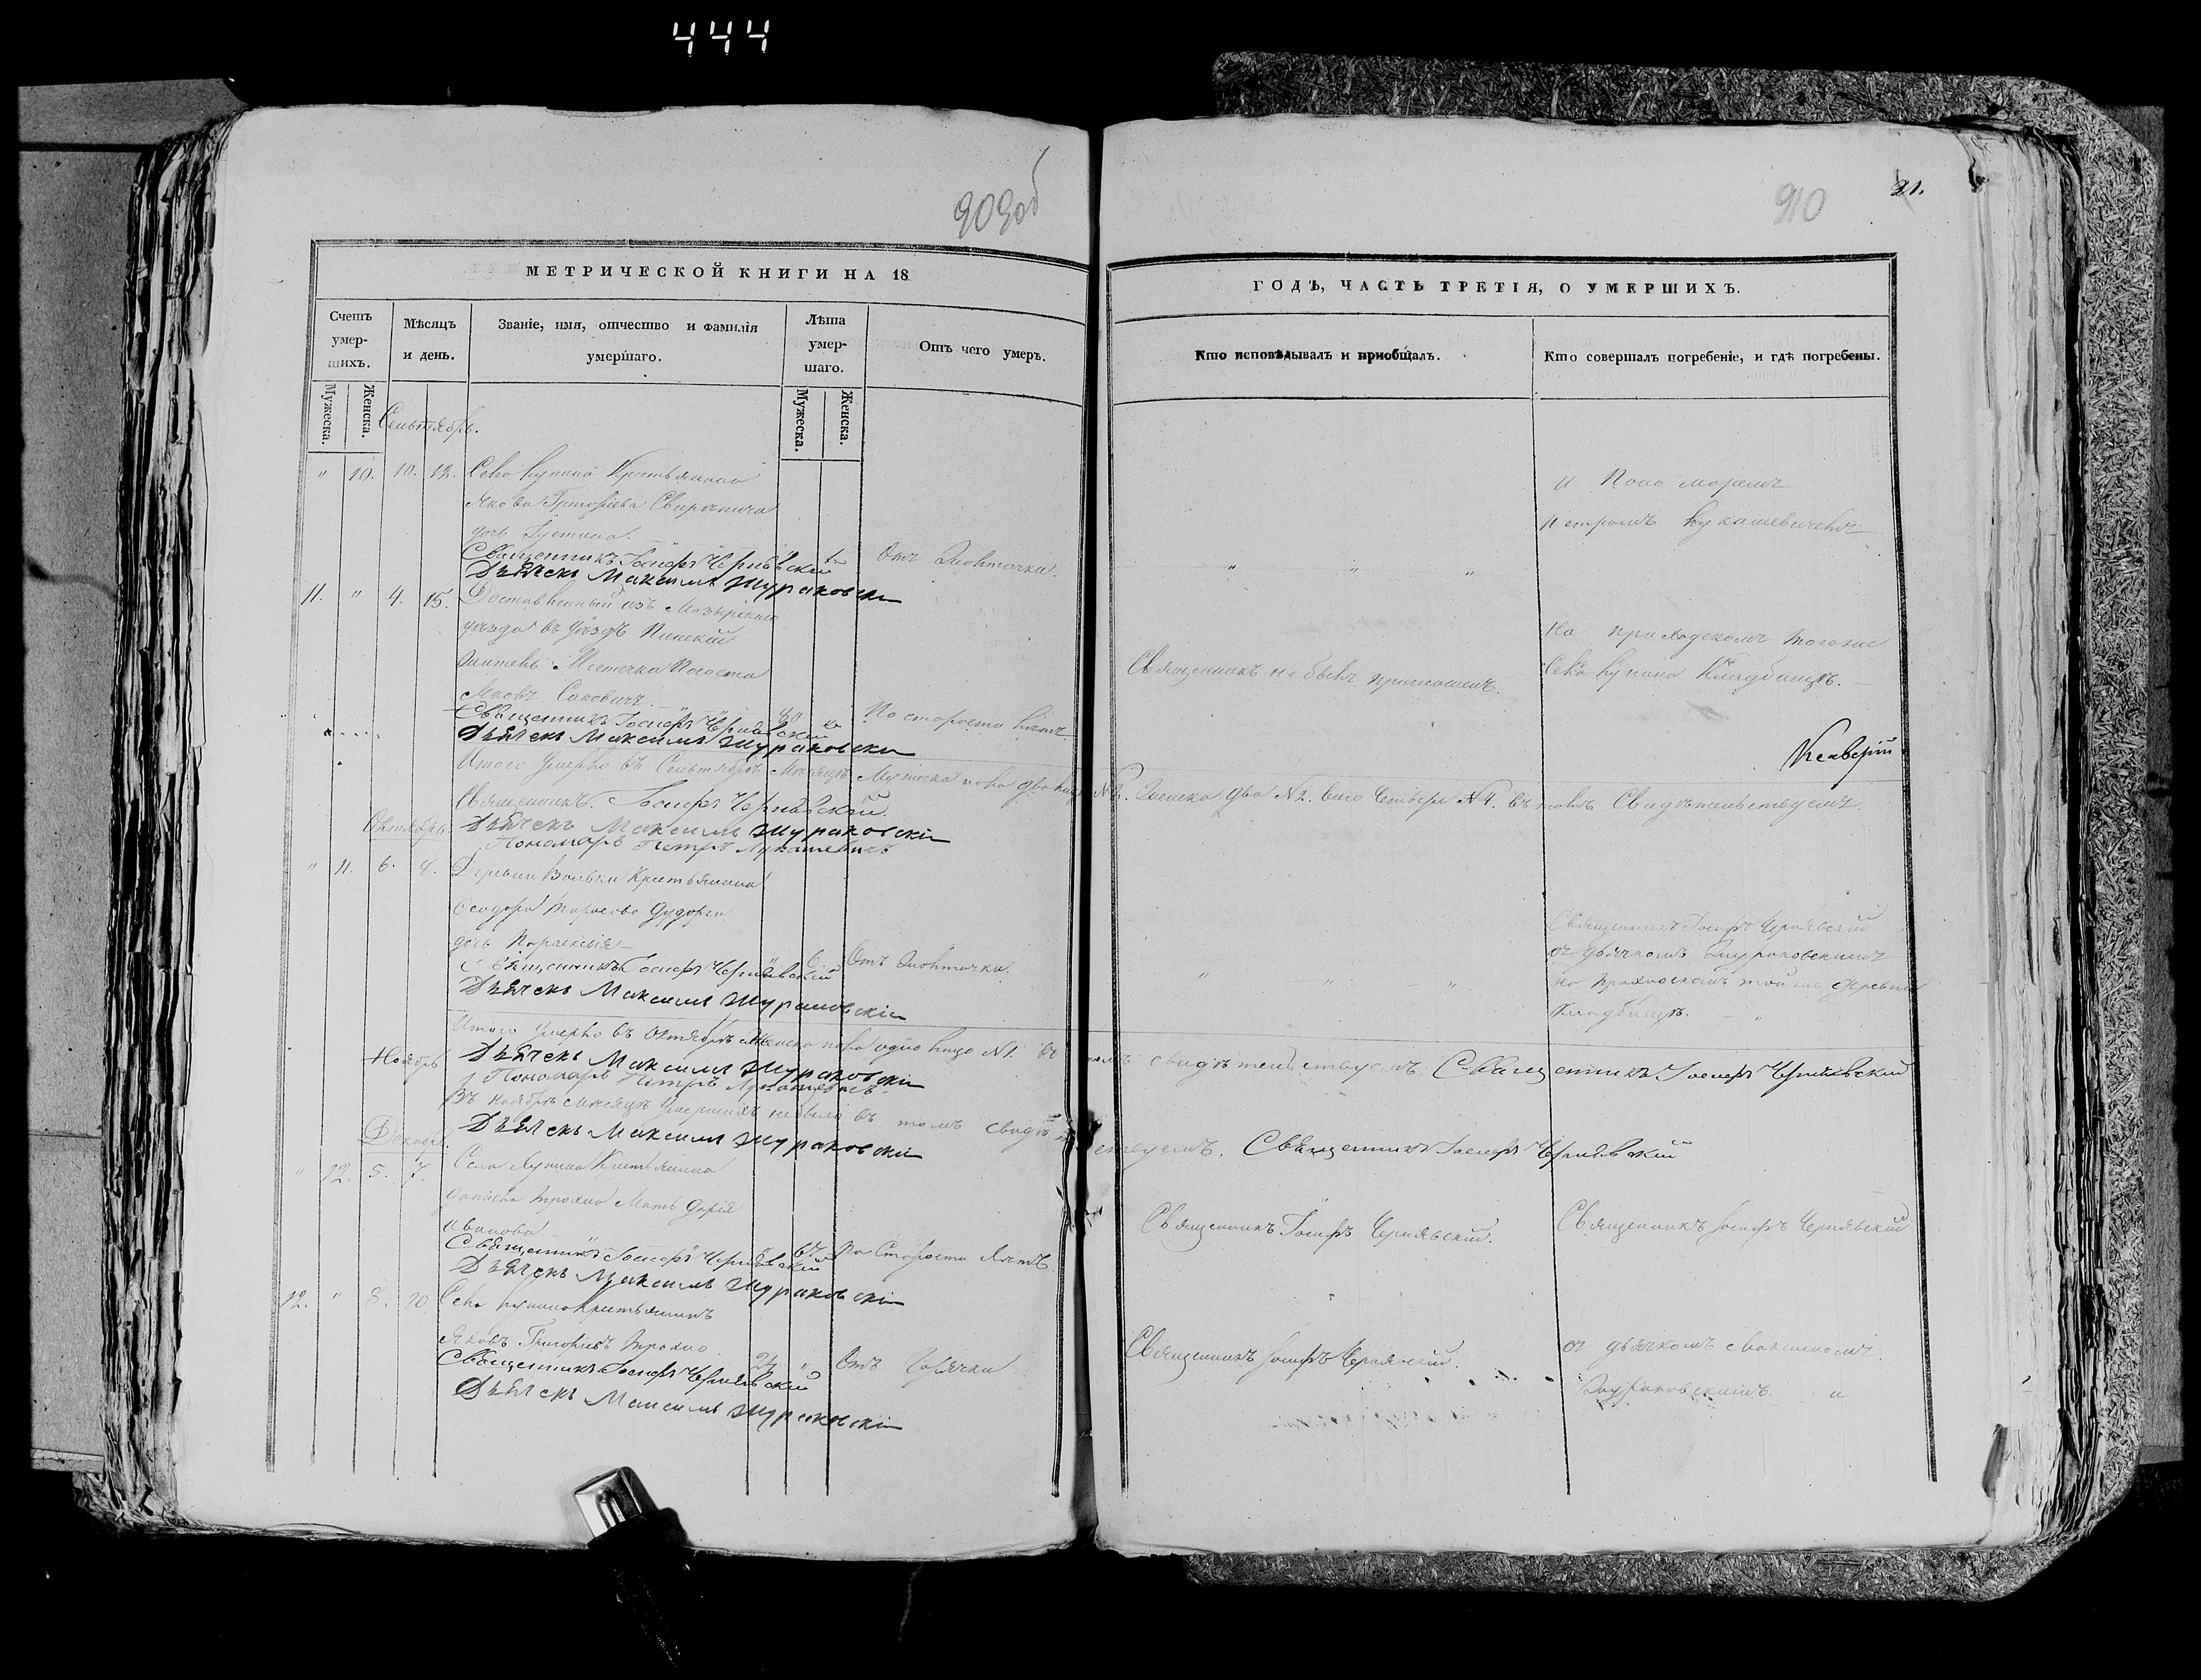 444
909об
910
21.
МЕТРИЧЕСКОЙ КНИГИ НА 18
ГОДЪ, ЧАСТЬ ТРЕТІЯ, О УМЕРШИХЪ.
Счетъ умер-шихъ.
Мѣсяцъ и день.
Званіе, имя, отчество и фамилія умершаго.
Лѣта умер-шаго.
Отъ чего умеръ.
Кто исповѣдывалъ и пріобщалъ.
Кто совершалъ погребеніе, и гдѣ погребены.
Мужеска.
Женска.
Мужеска.
Женска.
Сентябрь.
" 10. 10. 12. Села Лунина Крестьянина
Якова Григорьева
дочь
Священникъ Іосифъ Чернявскій
Отъ
Дьячекъ Максимъ Жураковскій
и Поно маремъ
Петромъ Лукашевичемъ
" " "
11. " 4. 15. Доставленный изъ Мозырскаго
уѣзда въ уѣздъ Пинскій
житель Мѣстечка Погоста
Яковъ
80 " По старости лѣтъ
Священникъ Іосифъ Чернявскій
Дьячекъ Максимъ Жураковскій
Священникъ не былъ приглашенъ.
На приходскомъ того же
Села Лунина Кладбищѣ.
Итого умерло въ Сентябрѣ Мѣсяцѣ Мужеска пола два лица №2. Женска два №2. всего четыре №4. въ томъ Свидѣтельствуемъ.
Священникъ Іосифъ Чернявскій
Дьячекъ Максимъ Жураковскій
Пономарь Петръ Лукашевичъ
Октябрь.
" 11. 6. 9. Деревни Вольки Крестьянина
Ѳеодора Тарасова
дочь Параскевія
" 6. Отъ
Священникъ Іосифъ Чернявскій
Дьячекъ Максимъ Жураковскій
" " "
Священникъ Іосифъ Чернявскій
съ дьячкомъ Жураковскимъ
на приходскомъ той же деревни
Кладбищѣ.
Итого умерло въ Октябрѣ Женска пола одно лицо №1. въ томъ свидѣтельствуемъ. Священникъ Іосифъ Чернявскій
Дьячекъ Максимъ Жураковскій
Пономарь Петръ Лукашевичъ
Ноябрь
Въ Ноябрѣ Мѣсяцѣ умершихъ небыло въ томъ свидѣтельствуемъ. Священникъ Іосифъ Чернявскій
Дьячекъ Максимъ Жураковскій
Декабрь.
" 12. 5. 7. Села Лунина Крестьянина
Данила Трохно Мать Дарія
Иванова
По Старости лѣтъ
Священникъ Іосифъ Чернявскій
Дьячекъ Максимъ Жураковскій
Священникъ Іосифъ Чернявскій.
Священникъ Іосифъ Чернявскій
12. " 8. 20. Села Лунина Крестьянинъ
Яковъ Григорьевъ Трохно
" Отъ Горячки
Священникъ Іосифъ Чернявскій
Дьячекъ Максимъ Жураковскій
Священникъ Іосифъ Чернявскій.
съ дьячкомъ Максимомъ
Жураковскимъ и